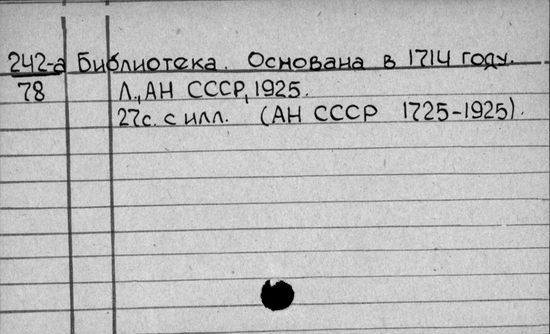 242-а Библиотека. Основана в 1714 году.
78 Л., АН СССР, 1925.
27с. с илл. (АН СССР 1725-1925).